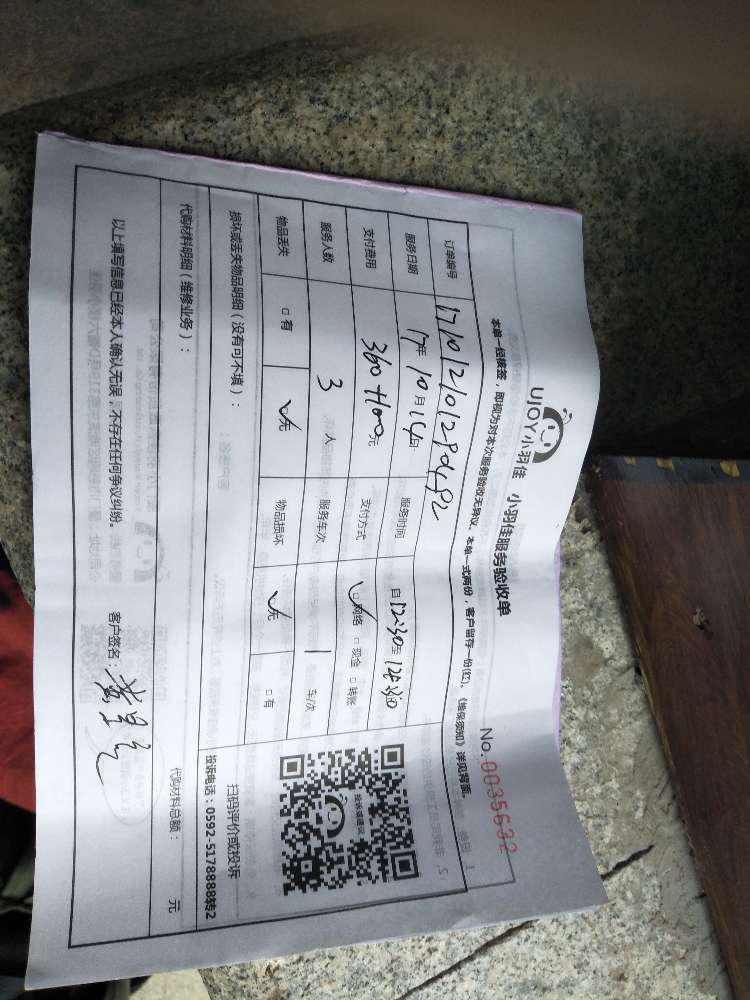 UJOY小羽佳 小羽佳服务验收单
No. 0035632
本单一经核签，即视为对本次服务验收无异议。本单一式两份，客户留存一份(红)，《维保须知》详见背面。
订单编号
服务日期 17年 10月 14日 服务时间 自 12:30至
支付费用 360+1100元 支付方式 ☑网络 □ 现金 □ 转账
服务人数 3 人 服务车次 1 车/次
物品丢失 □ 有 ☑无 物品损坏 ☑无 □ 有
损坏或丢失物品明细（没有可不填）：
扫码评价或投诉
投诉电话：0592-5178888转2
代购材料明细（维修业务）： 代购材料总额： 元
以上填写信息已经本人确认无误，不存在任何争议纠纷。 客户签名：